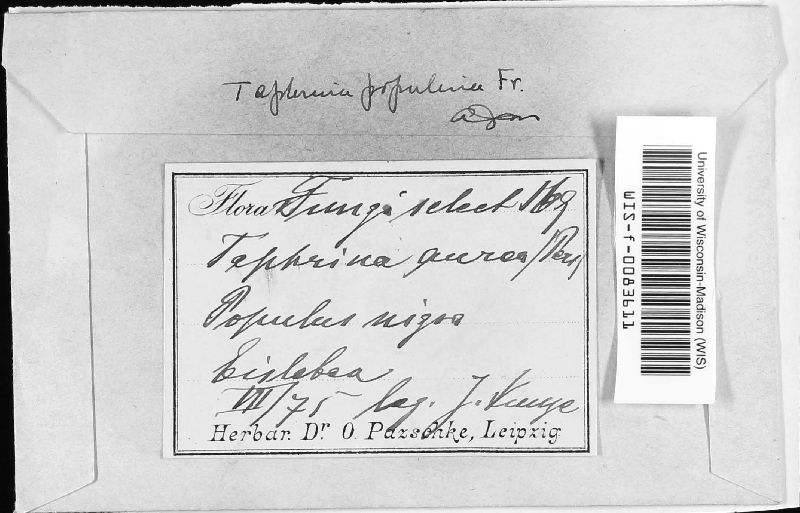 Taphrina populina Fr.
Flora Fungi select 169
Taphrina aurea (Pers)
Populus nigra
Eisleben
VII/75 leg. J. Kunze
Herbar. Dr O. Pazschke, Leipzig
University of Wisconsin-Madison (WIS)
WIS-f-0083611